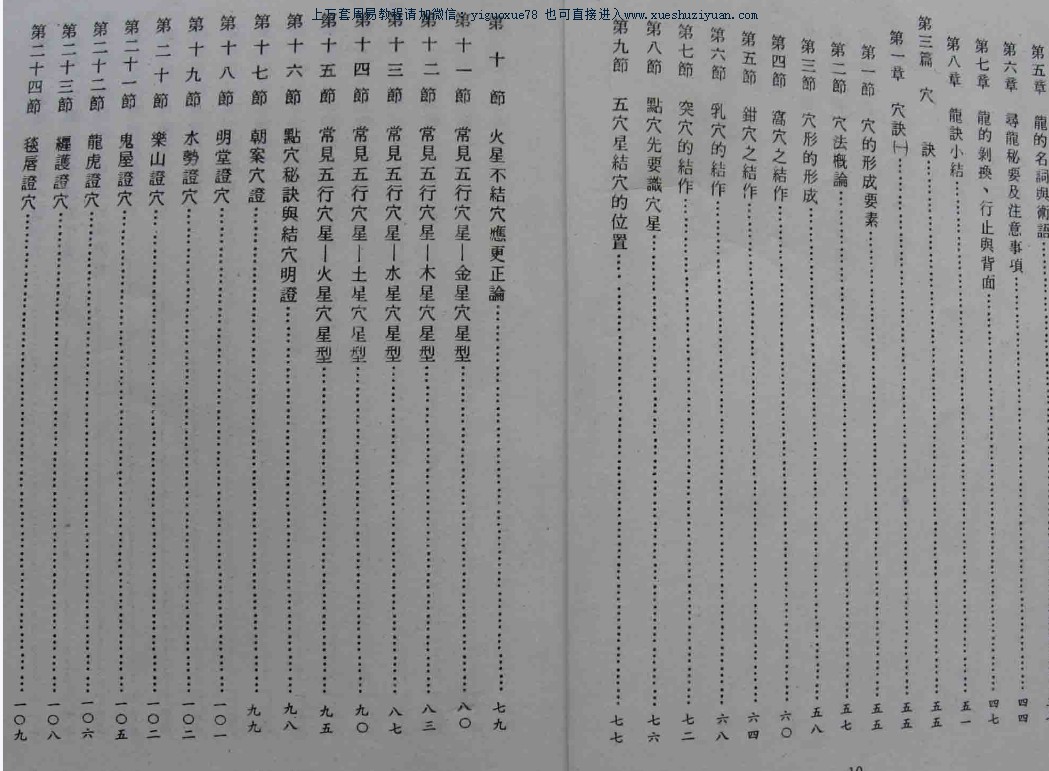 上万套周易教程请加微信：yiguoxue78 也可直接进入www.xueshuziyuan.com
第五章 龍的名詞與術語
第六章 尋龍秘要及注意事項……四四
第七章 龍的剝換、行止與背面……四七
第八章 龍訣小結……五一
第三篇 穴 訣……五五
第一章 穴訣㈠……五五
第一節 穴的形成要素……五五
第二節 穴法概論……五七
第三節 穴形的形成……五八
第四節 窩穴之結作……六〇
第五節 鉗穴之結作……六四
第六節 乳穴的結作……六八
第七節 突穴的結作……七二
第八節 點穴先要識穴星……七六
第九節 五穴星結穴的位置……七七
第十節 火星不結穴應更正論……七九
第十一節 常見五行穴星—金星穴星型……八〇
第十二節 常見五行穴星—木星穴星型……八三
第十三節 常見五行穴星—水星穴星型……八七
第十四節 常見五行穴星—土星穴星型……九〇
第十五節 常見五行穴星—火星穴星型……九五
第十六節 點穴秘訣與結穴明證……九八
第十七節 朝案穴證……九九
第十八節 明堂證穴……一〇一
第十九節 水勢證穴……一〇二
第二十節 樂山證穴……一〇二
第二十一節 鬼屋證穴……一〇五
第二十二節 龍虎證穴……一〇六
第二十三節 纏護證穴……一〇八
第二十四節 毯唇證穴……一〇九